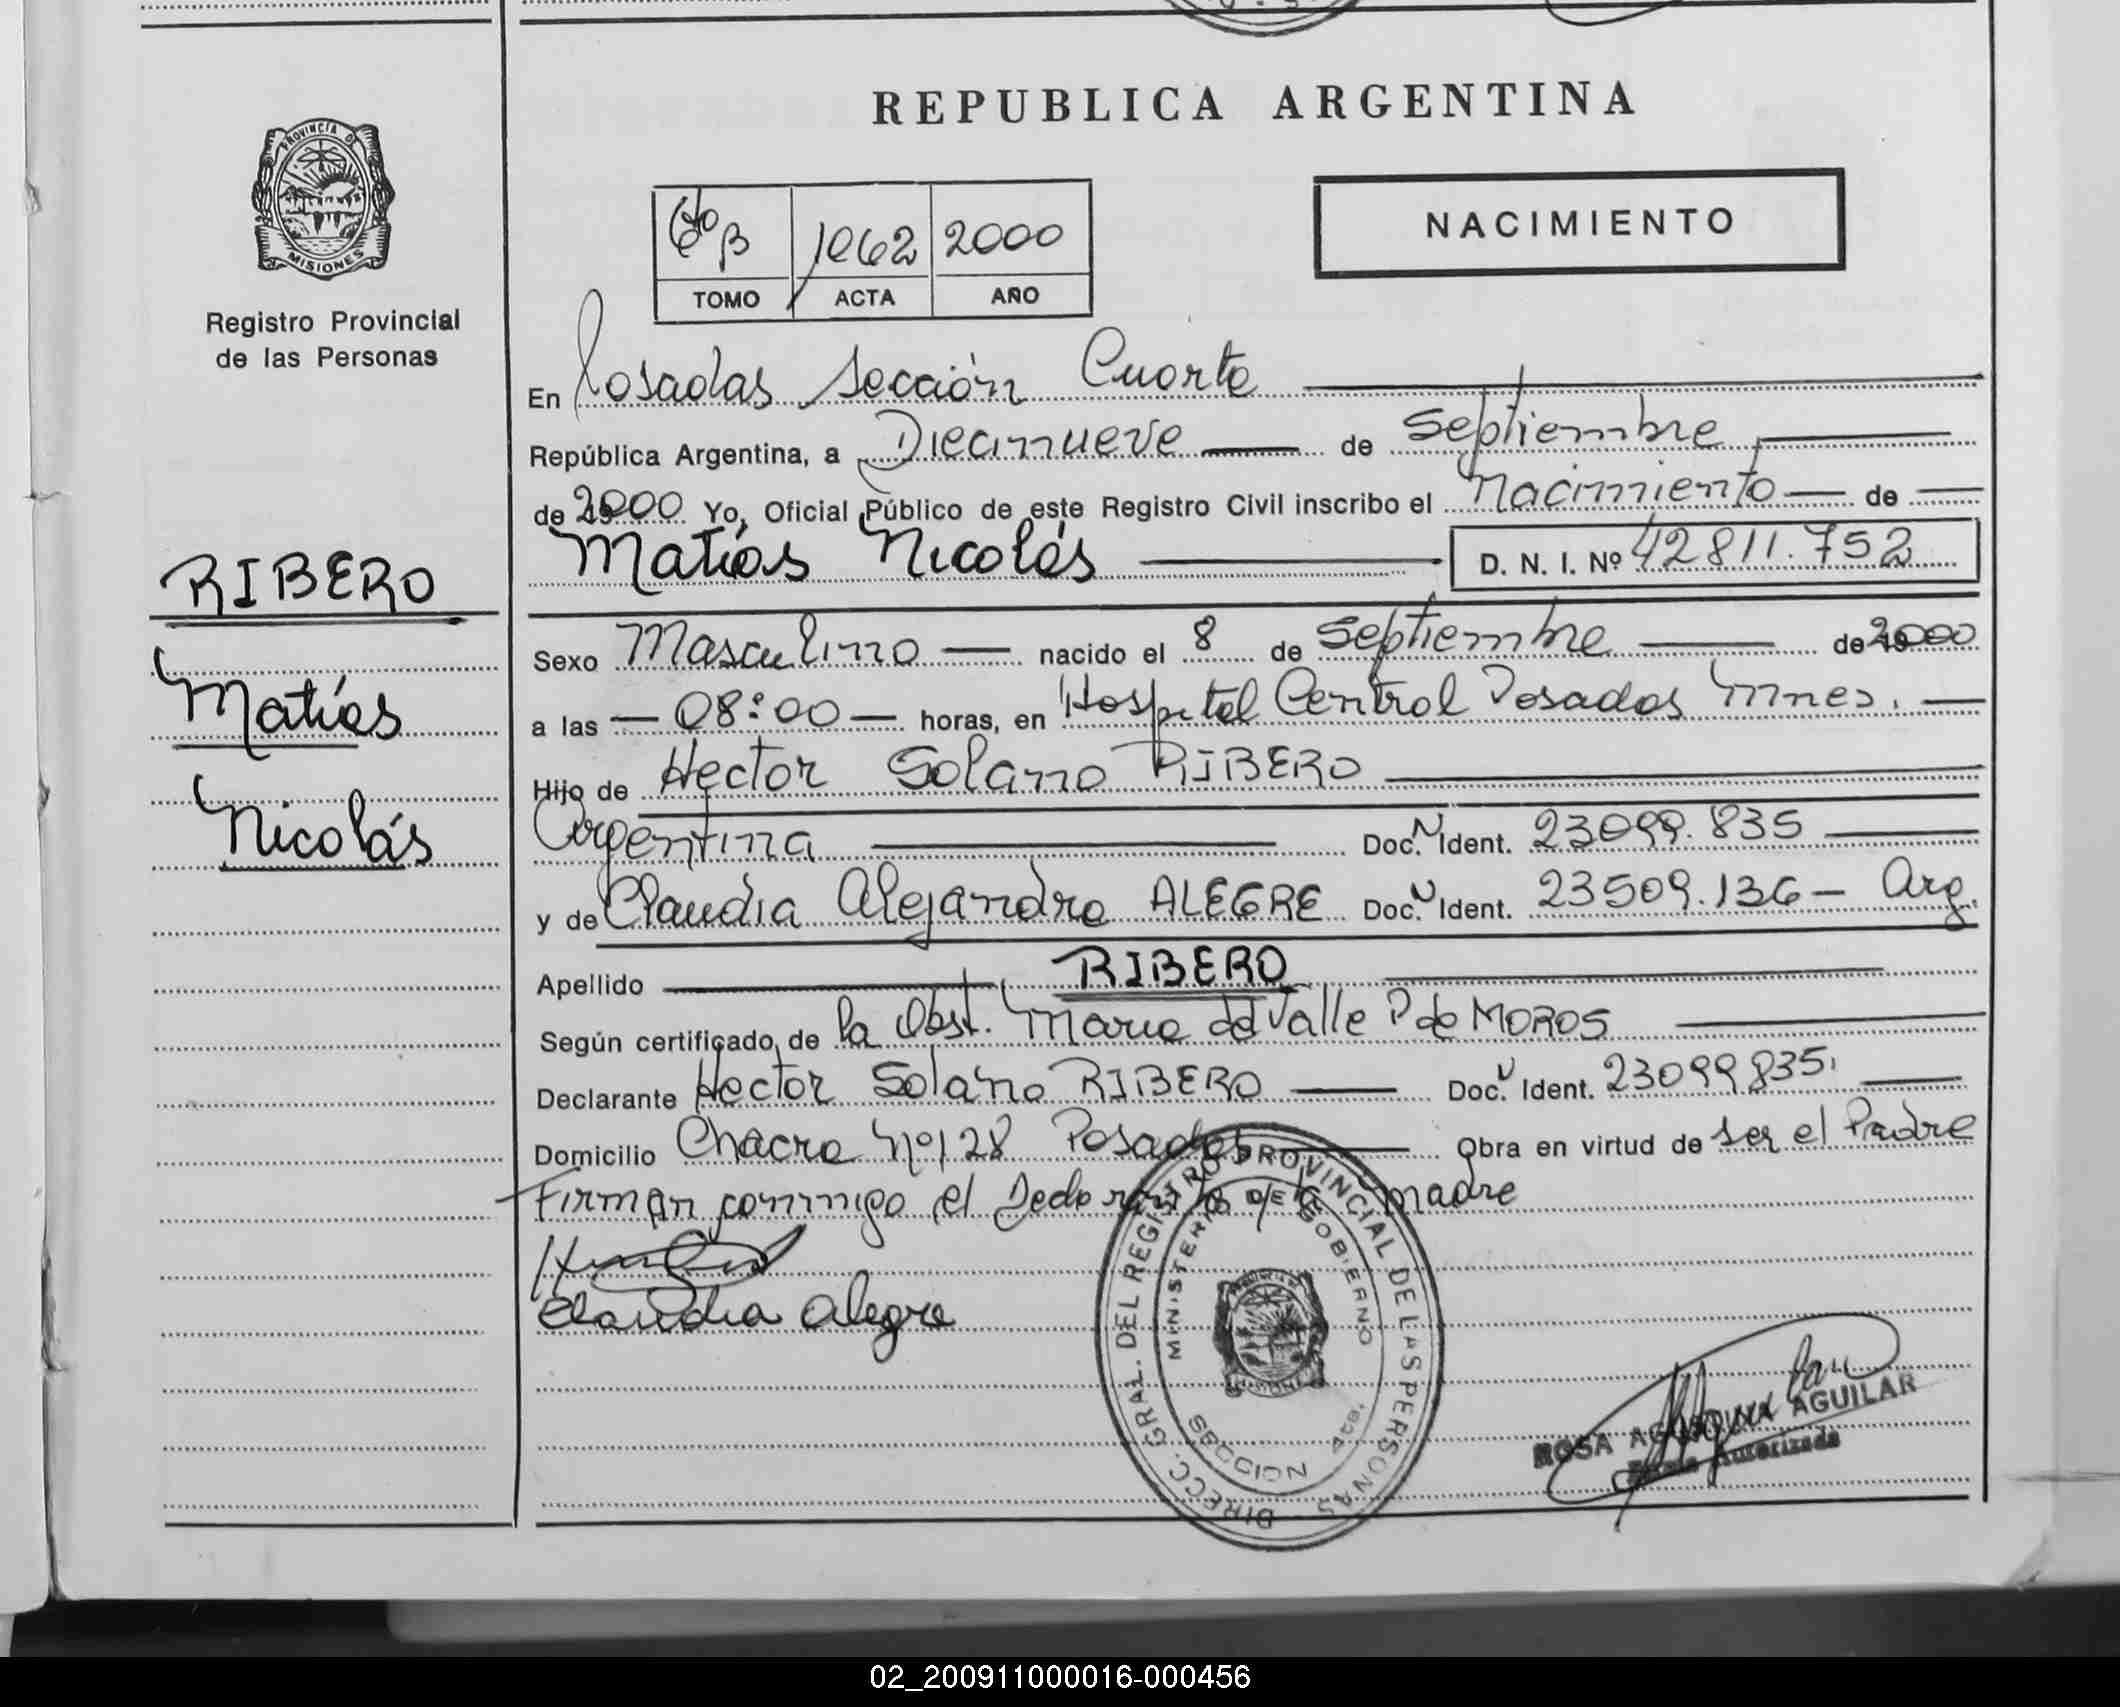 REPUBLICA ARGENTINA
PROVINCIA DE
MISIONES
Registro Provincial
de las Personas
NACIMIENTO
6to B 1062 2000
TOMO ACTA AÑO
En Posadas Sección Cuarta
República Argentina, a Diecinueve de Septiembre
de 2000 Yo, Oficial Público de este Registro Civil inscribo el Nacimiento de
Matías Nicolás D. N. I. Nº 42811.752
RIBERO
Matías
Nicolás
Sexo Masculino nacido el 8 de Septiembre de 2000
a las 08:00 horas, en Hospital Central Posadas Mnes.
Hijo de Hector Solano RIBERO
Argentina Doc. N Ident. 23099.835
y de Claudia Alejandra ALEGRE Doc. N Ident. 23509.136 - Arg.
Apellido RIBERO
Según certificado de la Obst. Maria del Valle P de MOROS
Declarante Hector Solano RIBERO Doc. N Ident. 23099835.
Domicilio Chacra Nº 128 Posadas Obra en virtud de ser el Padre
Firman conmigo el Declarante y la madre
Claudia Alegre
DIRECC. GRAL. DEL REGISTRO PROVINCIAL DE LAS PERSONAS
MINISTERIO DE GOBIERNO
SECCION 4ta.
ROSA AGUSTINA AGUILAR
Firma Autorizada
02_200911000016-000456